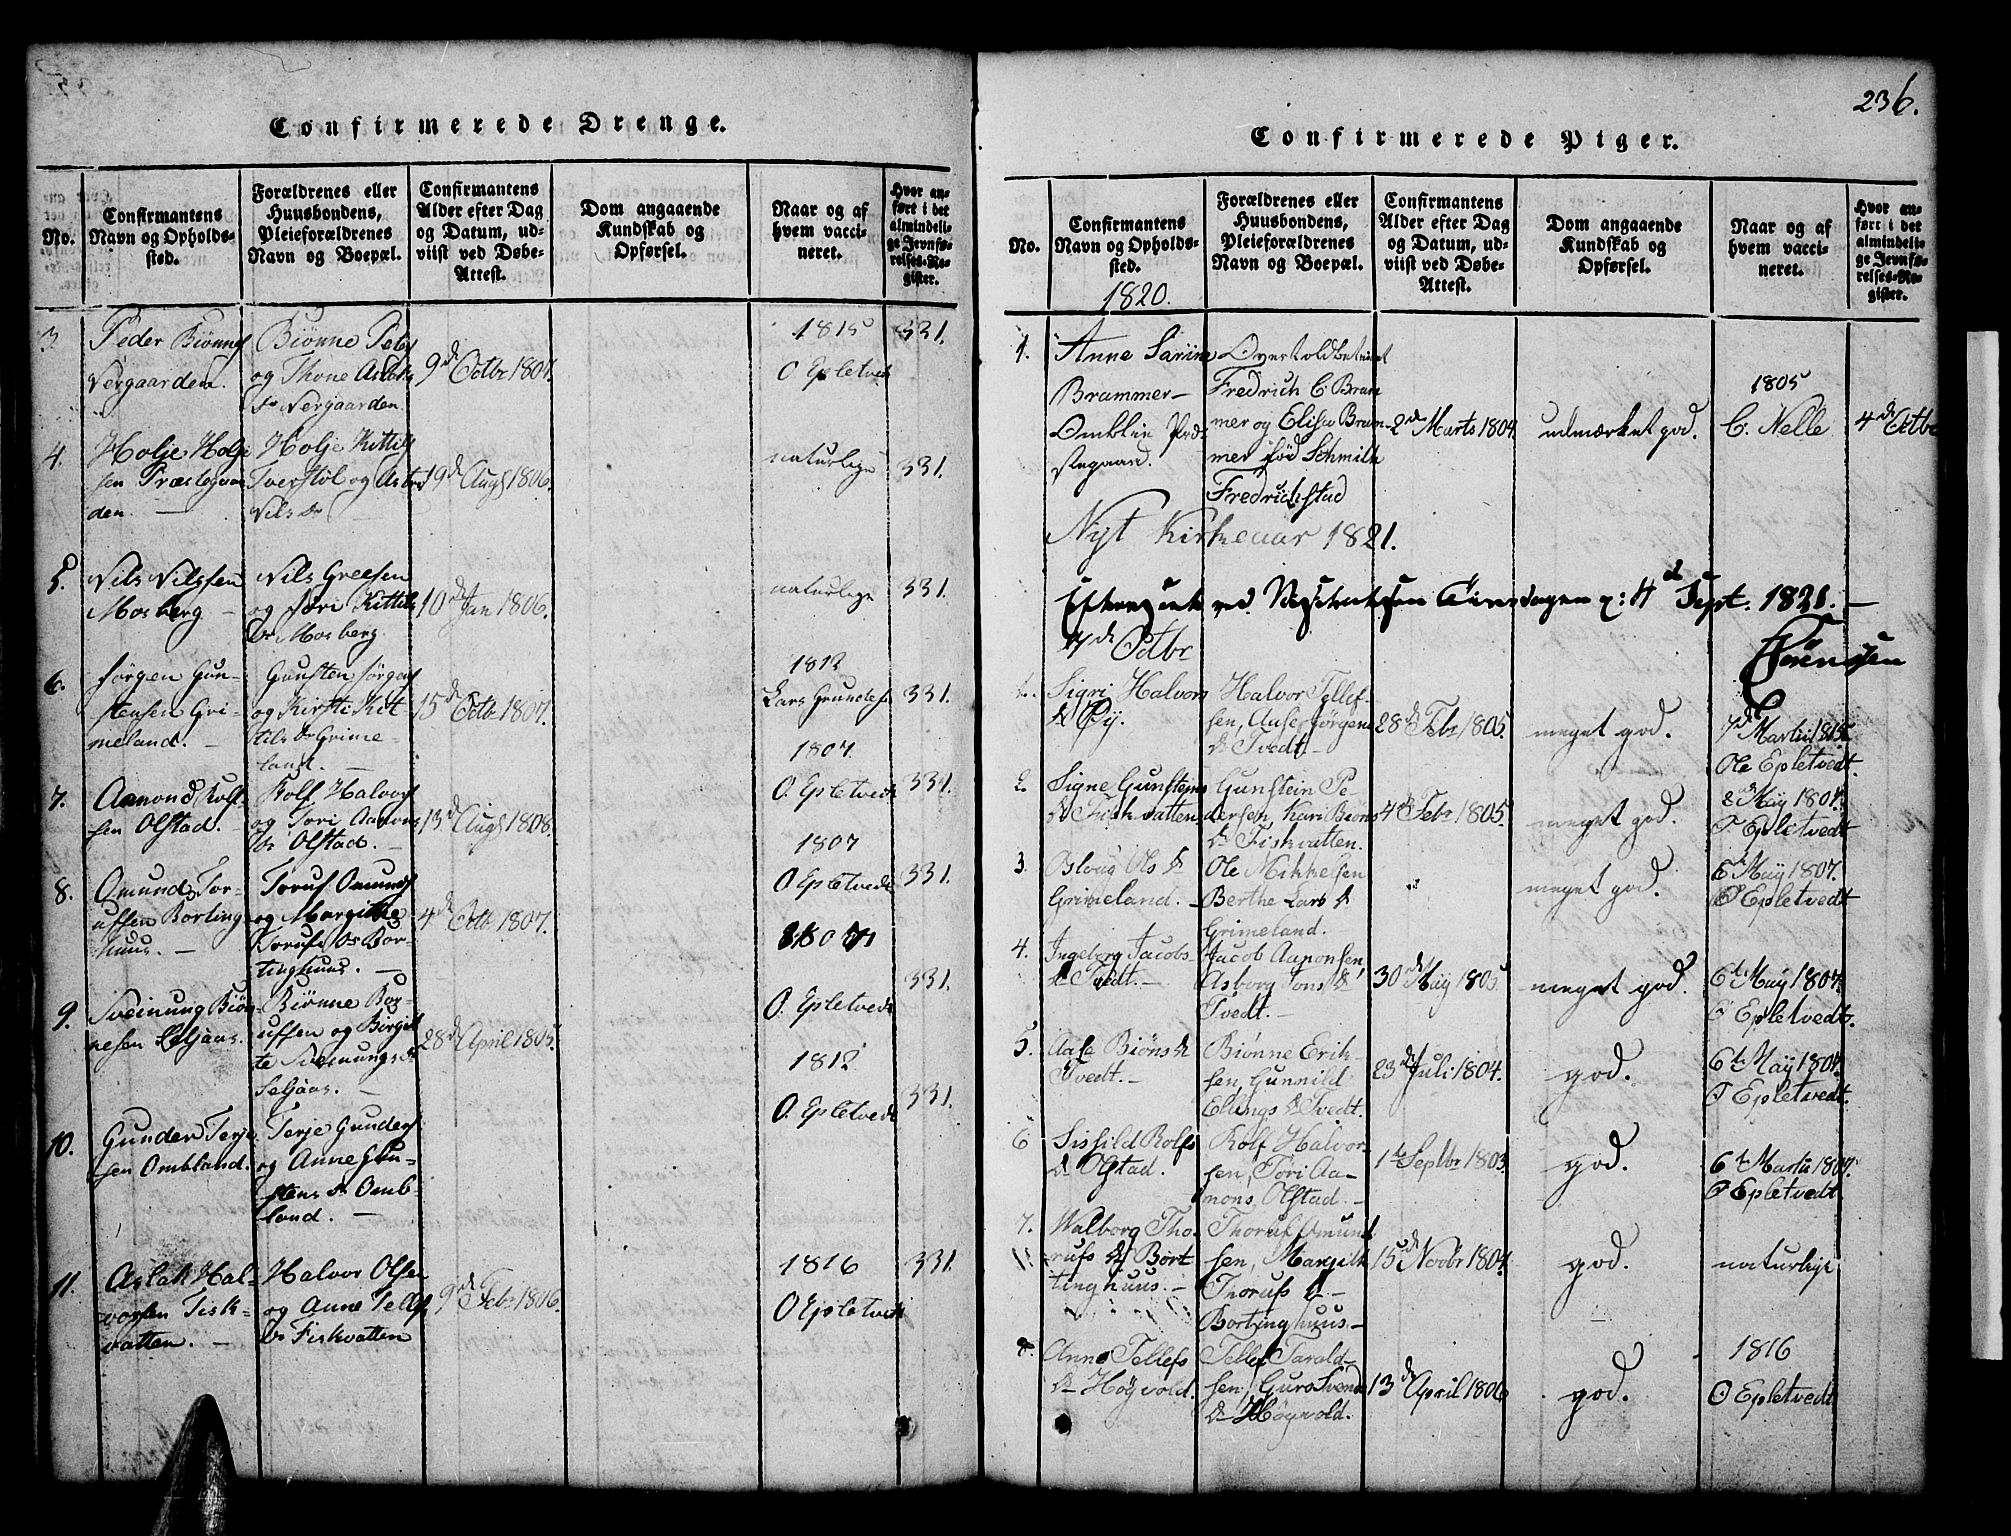 Confirmerede Drenge.
No.
Confirmantens
Navn og Opholds-
sted.
Forældrenes eller
Huusbondens,
Pleieforældrenes
Navn og Boepæl.
Confirmantens
Alder efter Dag
og Datum, ud-
viist ved Døbe-
Attest.
Dom angaaende
Kundskab og
Opførsel.
Naar og af
hvem vacci-
neret.
Hvor an-
ført i det
almindeli-
ge Jevnfø-
relses-Re-
gister.
3.
Peder Biønnes
Vergaarden.
Biønne Peds
og Thone Aslaks
Dr Vergaarden.
9de Octbr 1807.
1815
O Epletvedt
331.
4.
Holje Holje
sen Præstegaar
den.
Holje Kittils
Tverstöl og Asbor
Nils Dr
19de Augs 1806.
naturlige
331.
5.
Nils Nilssen
Mosberg
Nils Greesen
og Jöri Kittils
Dr Mosberg.
10de Jan 1806.
naturlige
331.
6.
Jörgen Gun-
stensen Gri-
meland.
Gunsten Jörgens
og Kirsti Kit
tils Dr Grime-
land.
15de Octb 1807.
1812
Lars Grundese
331.
7.
Aamond Rolf-
sen Olstad.
Rolf Halvors
og Tori Aamons
Dr Olstad.
13de Augs 1808.
1807.
O. Epletvedt
331.
8.
Omund Tor-
uffen Borting-
huus.
Toruf Omunds
og Margithe
Torufs Dr Bor-
tinghuus.
4de Octb 1807.
1807
O Epletvedt
331.
9.
Sveinung Biøn
nesen Seljaas.
Biønne Bor
uffen og Birgit
te Sveinungs Dr
Seljaas.
28de April 1805.
1807
O. Epletvedt
331.
10.
Gunder Terje
sen Ombland.
Terje Gunders
og Anne Gun-
stens Dr Omb-
land.
1812
O. Epletvedt
331.
11.
Aslak Hal-
vorsen Fisk-
vatten.
Halvor Olsen
og Anne Tellefs
Dr Fiskvatten
9de Febr 1806.
1816
O Epletvedt
331.
236.
Confirmerede Piger.
No.
Confirmantens
Navn og Opholds-
sted.
1820.
Forældrenes eller
Huusbondens,
Pleieforældrenes
Navn og Boepæl.
Confirmantens
Alder efter Dag
og Datum, ud-
viist ved Døbe-
Attest.
Dom angaaende
Kundskab og
Opførsel.
Naar og af
hvem vacci-
neret.
Hvor an-
ført i det
almindeli-
ge Jevnfø-
relses-Re-
gister.
1.
Anne Sarine
Brammer-
Omblie Præ-
stegaard.
Overtoldbetient
Fredrich C Bram
mer og Elisa Bram-
mer föd Schmith
Fredrichstad
2de Marts 1804.
udmærket god.
1805
C. Nelle
4de Octbr
Nyt Kirkeaar 1821.
ved Tirsdagen 4d Sept. 1821.
7de Octbr
Sörensen
1.
Sigri Halvors
Dr Öy.
Halvor Tellef-
sen, Aase Jörgens
Dr Tvedt.
28de Febr 1805.
meget god.
7de Martii 1815
Ole Epletvedt.
2.
Signe Gunsteins
Dr Fiskvatten
Gunstein Pe-
dersen, Kari Biøns
Dr Fiskvatten.
4de Febr 1805.
meget god.
2de Maÿ 1807.
O Epletvedt
3.
Oslaug Ols Dr
Grimeland.
Ole Mikkelsen
Berthe Lars Dr
Grimeland.
meget god.
6 Maÿ 1807.
O Epletvedt
4.
Ingeborg Jacobs
Dr Tvedt.
Jacob Aanonsen
Asborg Tons Dr
Tvedt.
30de Maÿ 1805
meget god.
6te Maÿ 1807.
O Epletvedt.
5.
Aase Biøns Dr
Tvedt.
Biønne Erik-
sen, Gunnild
Ellings Dr Tvedt.
23de Juli 1804.
god.
6te Maÿ 1807.
O Epletvedt.
6
Sisfild Rolfs
Dr Olstad.
Rolf Halvor-
sen, Tori Aa-
mons, Olstad.
1te Septbr 1803.
god.
6te Martii 1807.
O Epletvedt.
7.
Walborg Tho-
rufs Dr Bort
tinghuus.
Thoruf Omund
sen, Margith
Thorufs Dr
Bortinghuus
15de Novbr 1804.
god.
naturlige
8.
Anne Tellefs
Dr Høyvold.
Tellef Tarald-
sen, Guro Svends
Dr Høyvold.
13de April 1806
god.
1816
O Epletvedt